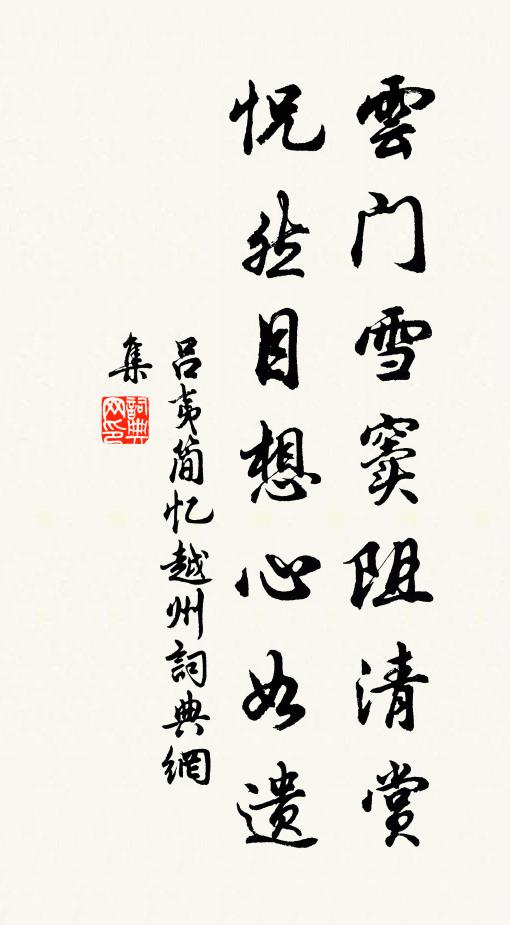 雲门雪窦阻清赏
怳然目想心如遗
吕夷简忆越州詞典網
集
詞典
网印